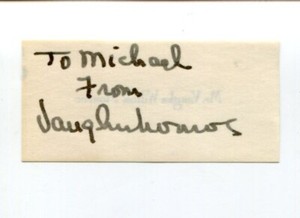 To Michael
From
Vaughn Monroe